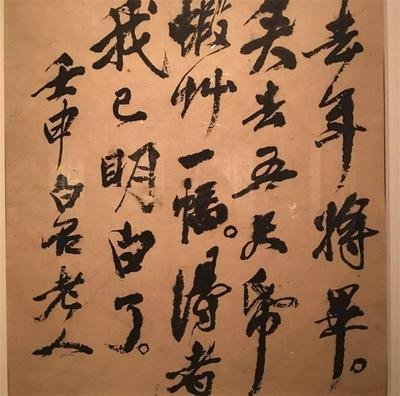 去年將畢。
失去五尺帋
蝦艸一幅。得者
我已明白了。
壬申白石老人